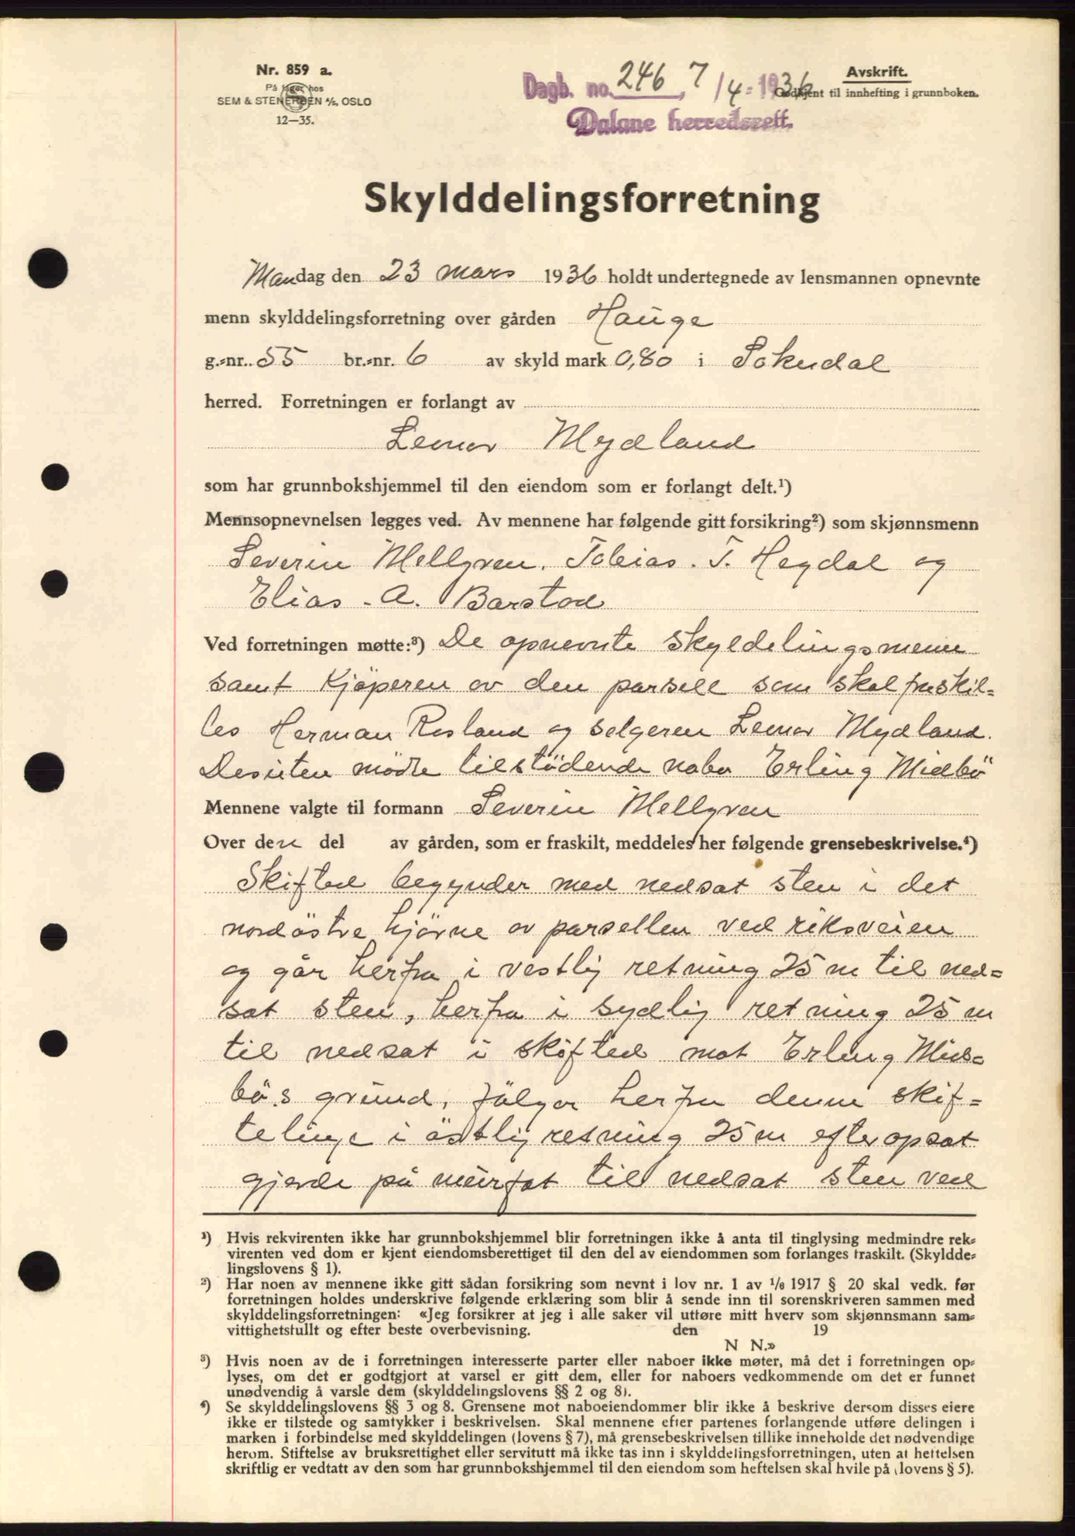 Nr. 859 a.
På lager hos
SEM & STENERSEN A/S, OSLO
12—35.
Dagb. no. 246, 7/4-1936
Dalane herredsrett.
Avskrift.
Godkjent til innhefting i grunnboken.
Skylddelingsforretning
Mandag den 23 mars 1936 holdt undertegnede av lensmannen opnevnte
menn skylddelingsforretning over gården Hauge
g.-nr. 55 br.-nr. 6 av skyld mark 0,80 i Sokndal
herred. Forretningen er forlangt av
Leonor Mydland
som har grunnbokshjemmel til den eiendom som er forlangt delt.¹)
Mennsopnevnelsen legges ved. Av mennene har følgende gitt forsikring²) som skjønnsmenn
Severin Mellgren, Tobias. T. Hegdal og
Elias. A. Barstad
Ved forretningen møtte:³) De opnevnte skyldelingsmenn
samt Kjöperen av den parsell som skal fraskil=
les Herman Rosland og selgeren Leonor Mydland.
Desuten mödte tilstödende nabo Erling Midbö
Mennene valgte til formann Severin Mellgren
Over den del av gården, som er fraskilt, meddeles her følgende grensebeskrivelse.⁴)
Skifted begynder med nedsat sten i det
nordöstre hjörne av parsellen ved riksveien
og går herfra i vestlig retning 25 m til ned=
sat sten, herfra i sydlig retning 25 m
til nedsat i skifted mot Erling Mid=
bö.s grund, fölger herfra denne skif=
telinje i östlig retning 25 m efter opsat
gjerde på murfot til nedsat sten ved
¹) Hvis rekvirenten ikke har grunnbokshjemmel blir forretningen ikke å anta til tinglysing medmindre rek-
virenten ved dom er kjent eiendomsberettiget til den del av eiendommen som forlanges fraskilt. (Skyldde-
lingslovens § 1).
²) Har noen av mennene ikke gitt sådan forsikring som nevnt i lov nr. 1 av 1/6 1917 § 20 skal vedk. før
forretningen holdes underskrive følgende erklæring som blir å sende inn til sorenskriveren sammen med
skylddelingsforretningen: «Jeg forsikrer at jeg i alle saker vil utføre mitt hverv som skjønnsmann sam-
vittighetsfullt og efter beste overbevisning. den 19
N N.»
³) Hvis noen av de i forretningen interesserte parter eller naboer ikke møter, må det i forretningen op-
lyses, om det er godtgjort at varsel er gitt dem, eller for naboers vedkommende om det er funnet
unødvendig å varsle dem (skylddelingslovens §§ 2 og 8).
⁴) Se skylddelingslovens §§ 3 og 8. Grensene mot naboeiendommer blir ikke å beskrive dersom disses eiere
ikke er tilstede og samtykker i beskrivelsen. Skal mennene efter partenes forlangende utføre delingen i
marken i forbindelse med skylddelingen (lovens § 7), må grensebeskrivelsen tillike inneholde det nødvendige
herom. Stiftelse av bruksrettighet eller servitutt må ikke tas inn i skylddelingsforretningen, uten at heftelsen
skriftlig er vedtatt av den som har grunnbokshjemmel til den eiendom som heftelsen skal hvile på (lovens § 5).